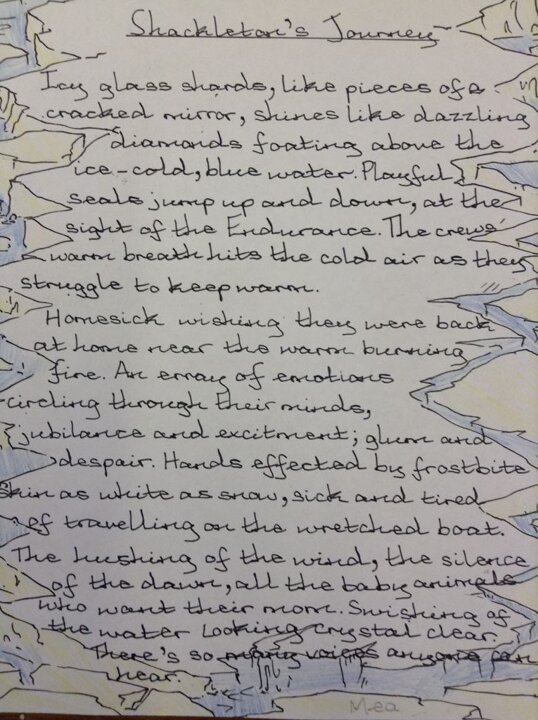 Shackleton's Journey
Icy glass shards, like pieces of a
cracked mirror, shines like dazzling
diamonds foating above the
ice-cold, blue water. Playful
seals jump up and down, at the
sight of the Endurance. The crews'
warm breath hits the cold air as they
struggle to keep warm.
Homesick wishing they were back
at home near the warm burning
fire. An erray of emotions
circling through their minds,
jubilance and excitment; glum and
despair. Hands effected by frostbite
Skin as white as snow, sick and tired
of travelling on the wretched boat.
The hushing of the wind, the silence
of the dawn, all the baby animals
who want their mom. Swishing of
the water looking crystal clear.
There's so many voices anyone can
hear.
Mea